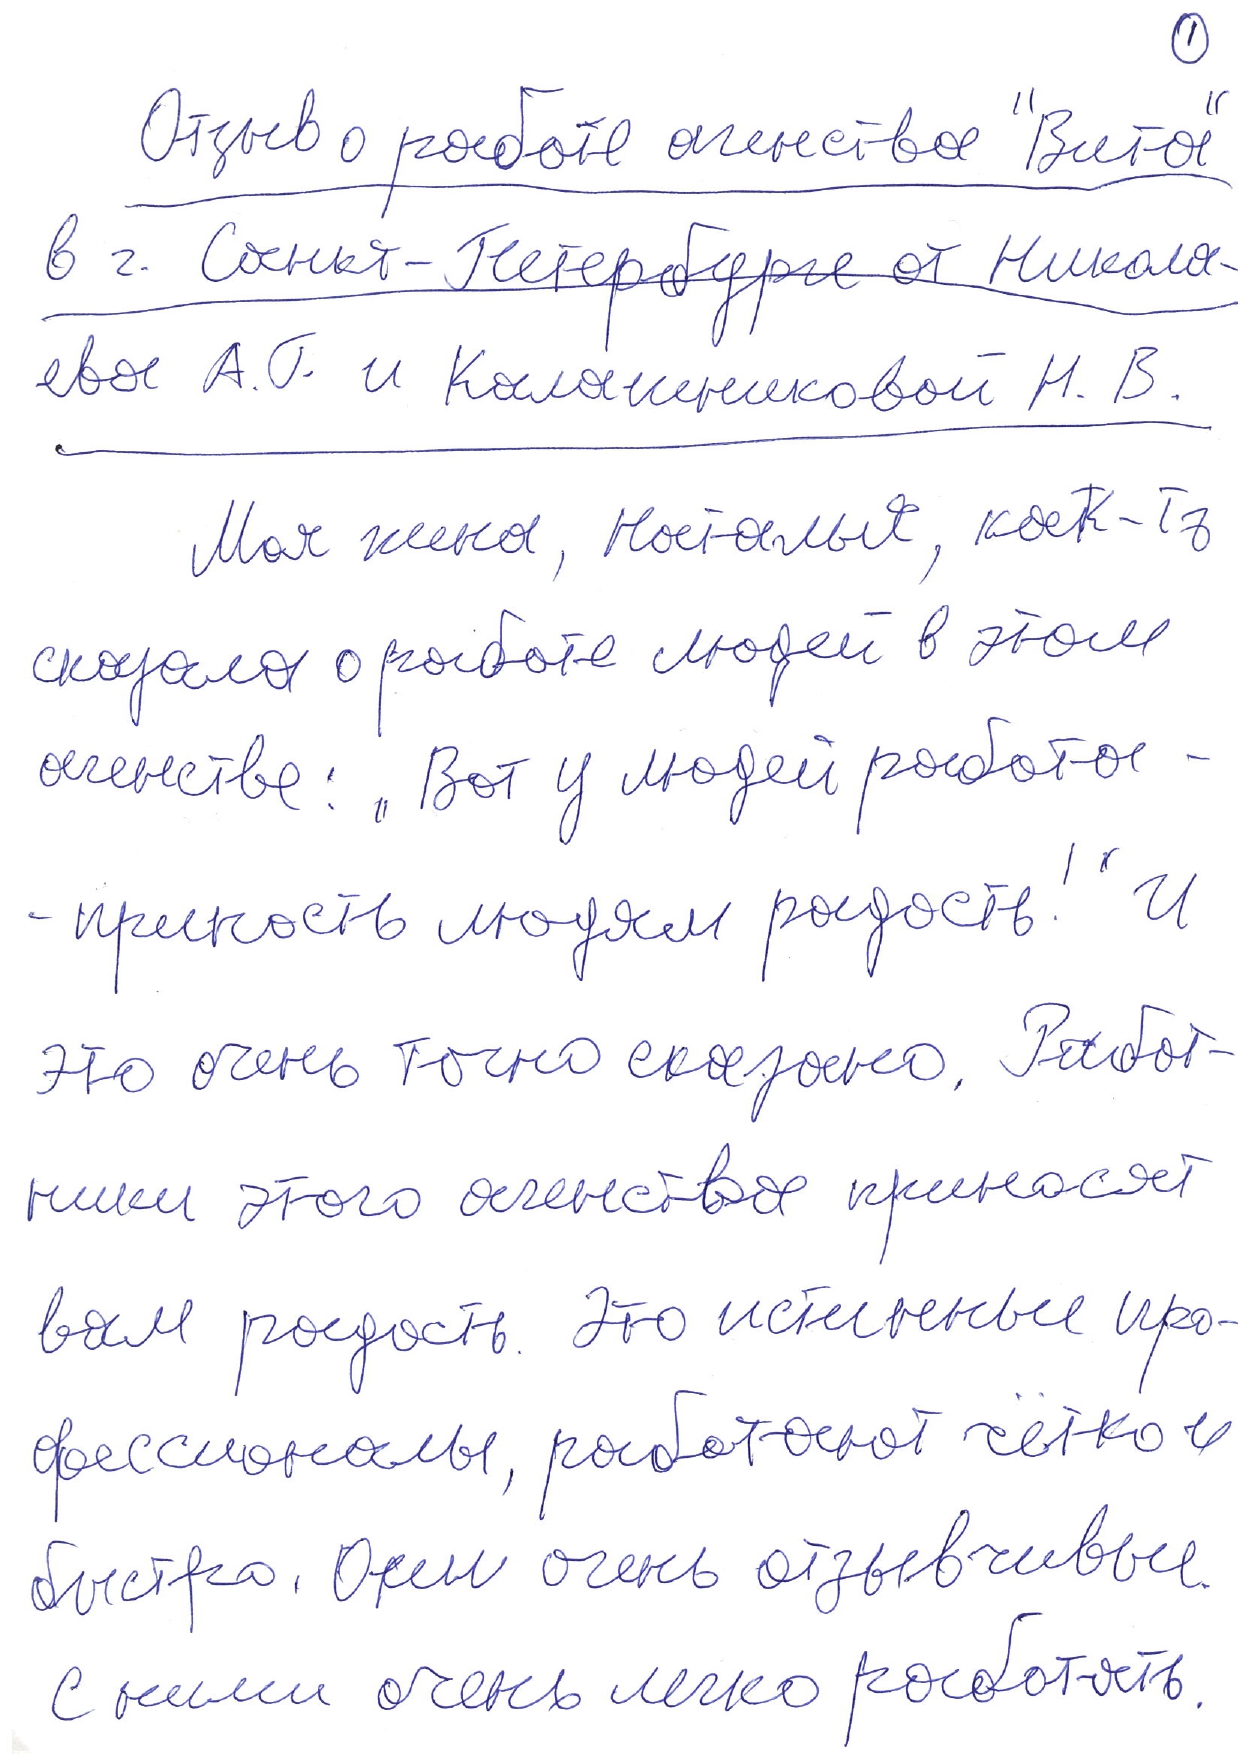 1
Отзыв о работе агенства "Вита"
в г. Санкт-Петербурге от Никола-
ева А.Г. и Калашниковой Н.В.
Моя жена, Наталья, как-то
сказала о работе людей в этом
агенстве: „Вот у людей работа -
- приность людям радость!" И
это очень точно сказано. Работ-
ники этого агенства приносят
вам радость. Это истинные про-
фессионалы, работают чётко и
быстро. Они очень отзывчивые.
С ними очень легко работать.